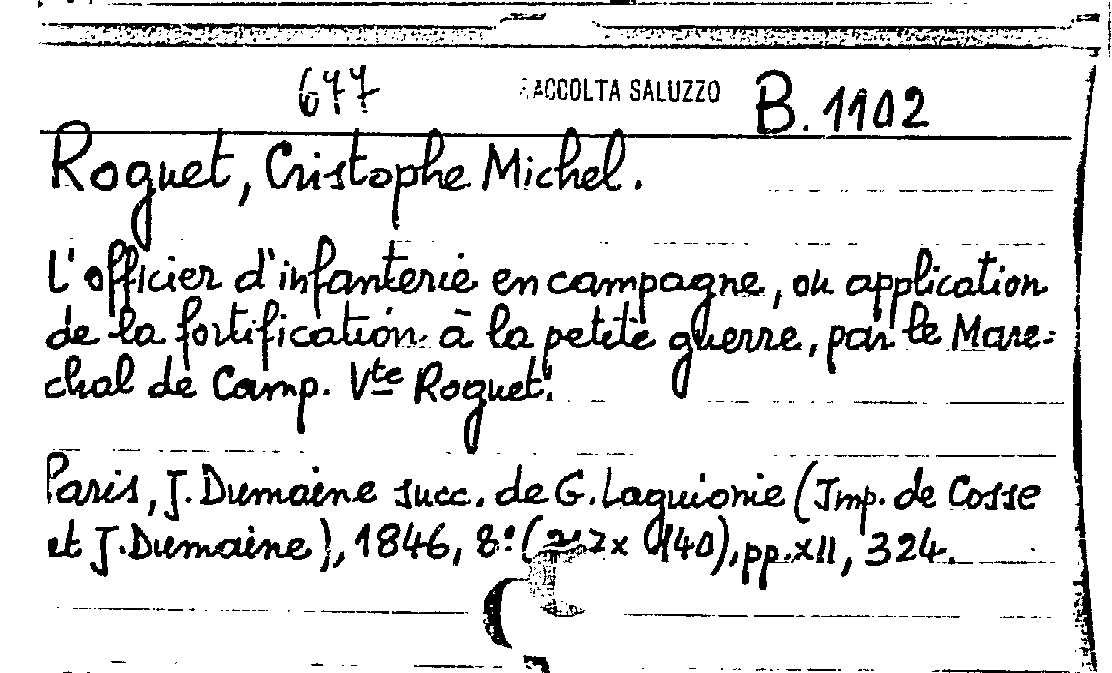 677 RACCOLTA SALUZZO B. 1102
Roguet, Cristophe Michel.
L'officier d'infanterie en campagne, ou application
de la fortification à la petite guerre, par le Mare=
chal de Camp. Vte Roguet.
Paris, J. Dumaine succ. de G. Laguionie (Imp. de Cosse
et J. Dumaine), 1846, 8º ( x 140), pp. XII, 324.